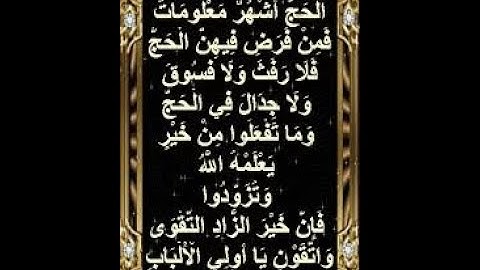 الْحَجُّ أَشْهُرٌ مَعْلُومَاتٌ
فَمَنْ فَرَضَ فِيهِنَّ الْحَجَّ
فَلَا رَفَثَ وَلَا فُسُوقَ
وَلَا جِدَالَ فِي الْحَجِّ
وَمَا تَفْعَلُوا مِنْ خَيْرٍ
يَعْلَمْهُ اللَّهُ
وَتَزَوَّدُوا
فَإِنَّ خَيْرَ الزَّادِ التَّقْوَى
وَاتَّقُونِ يَا أُولِي الْأَلْبَابِ